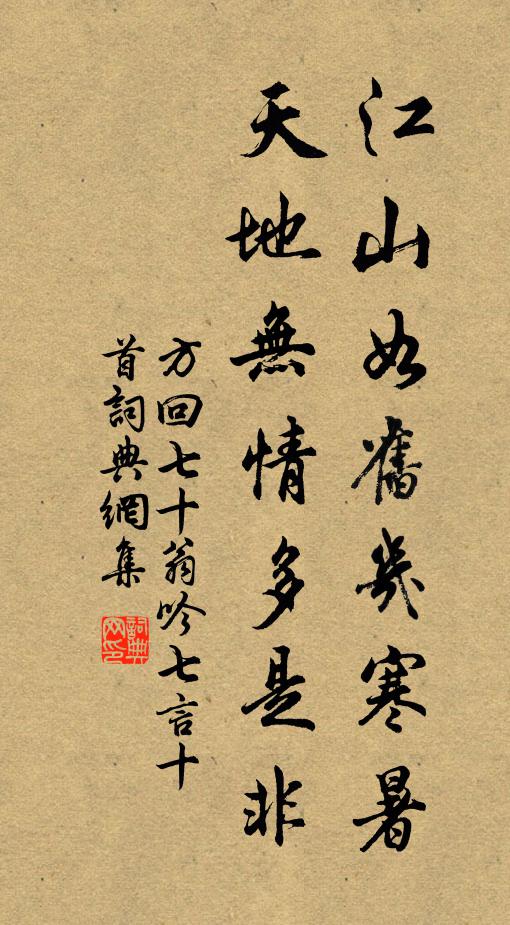 江山如舊幾寒暑
天地無情多是非
方回七十翁吟七言十
首詞典網集
詞典網印